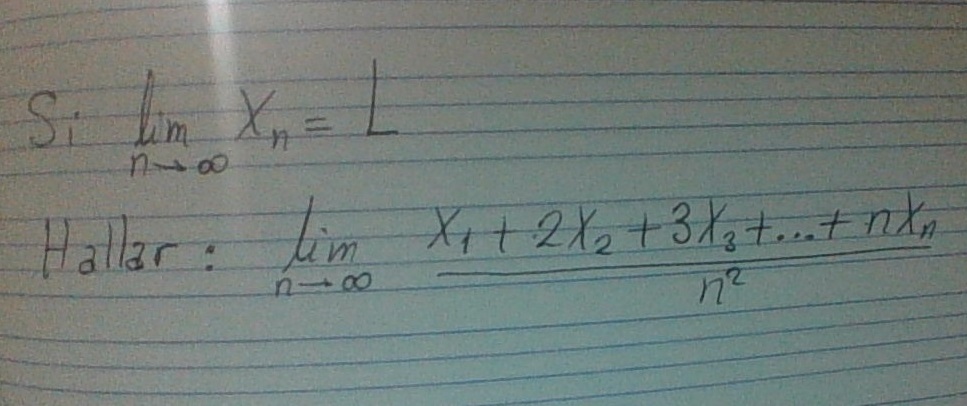 Si lim n→∞ Xn = L
Hallar : lim n→∞ X1 + 2X2 + 3X3 + ... + nXn / n²